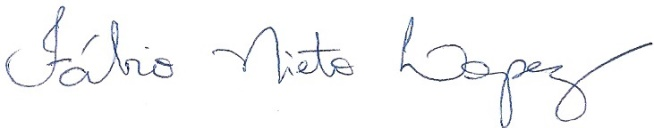 Fábio Nieto Lopez